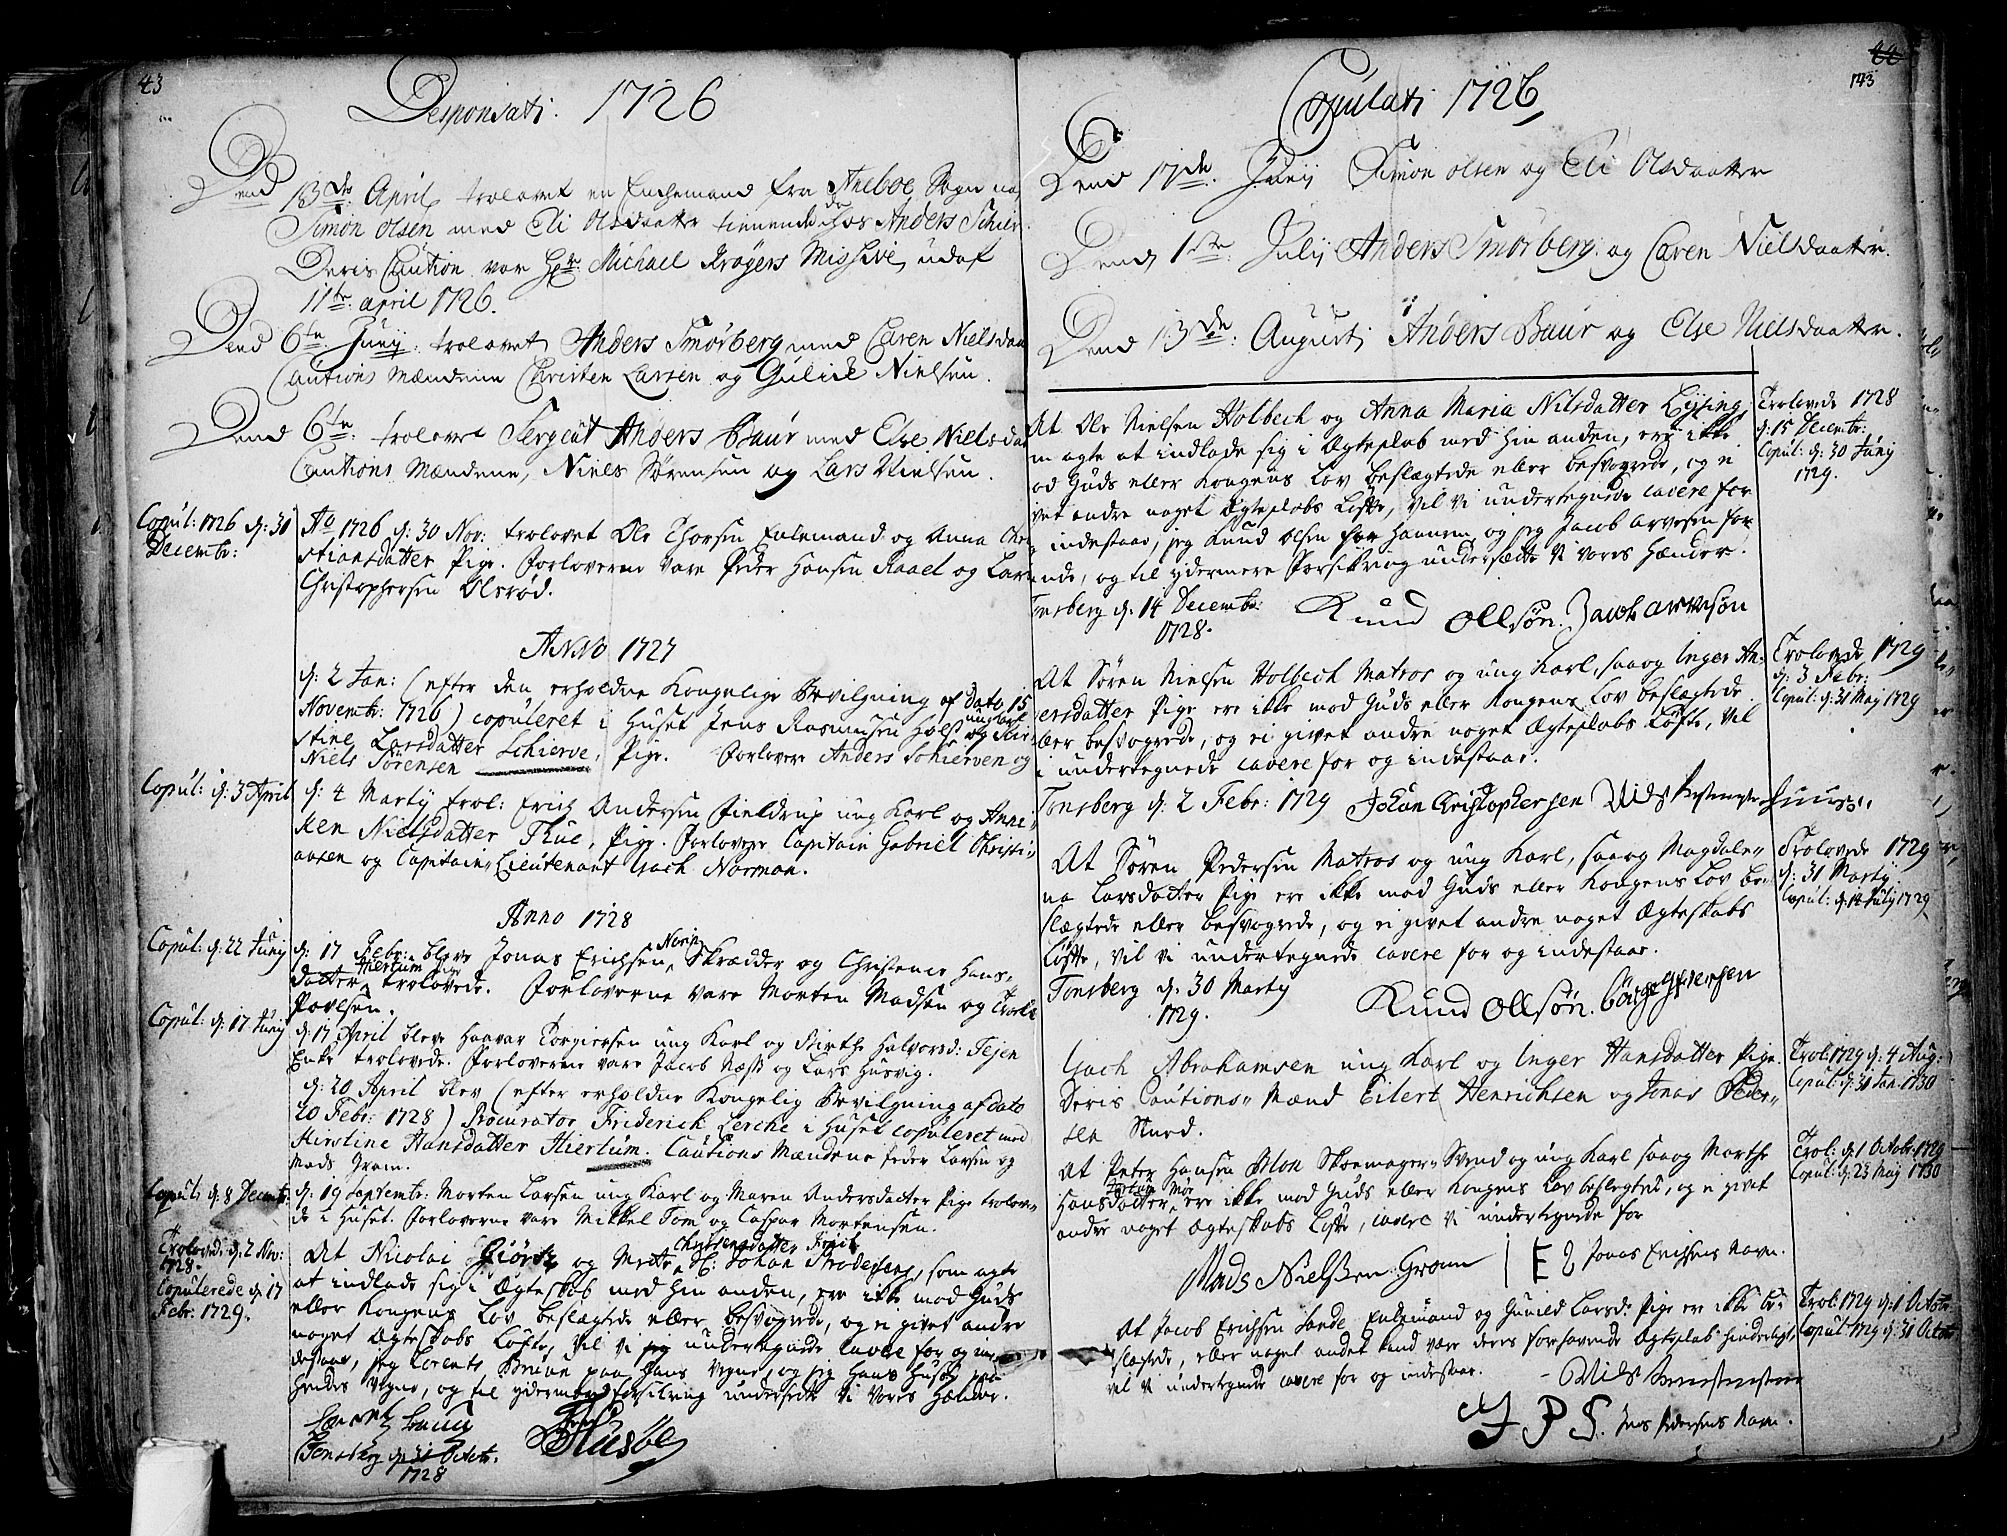 43
Desponsati. 1726
Dend 13de April trolovet en Enchemand fra Aneboe Sogn na
Simon Olsen med Eli Olsdaatter tienende hos Anders Schier
Deris Caution var Hr. Michael Krøyers Missive, udaf
11te april 1726.
Dend 6te Junij trolovet Anders Smørberg med Caren Nielsdaa
Cautions Mændene Christen Larsen og Gulich Nielsen.
Dend 6te trolovet Sergeut Anders Baur med Else Nielsdat
Cautions Mændene, Niels Sørensen og Lars Nielsen.
Copul: 1726 d: 31
Decembr:
Ao 1726 d: 30 Nov: trolovet Ole Thorsen Enkemand og Anna Chri
stiansdatter Pige. Forloverne vare Peder Hansen Raael og Lars
Christophersen Olsrød.
Anno 1727
d: 2 Jan: (efter den erholdne Kongelige Bevilgning af Dato 15
Novembr: 1726) copuleret i Huset Jens Rasmussen Holst ung karl og Kir
stine Larsdatter Schierve, Pige. Forlovere Anders Schierven og
Niels Sørensen
Copul: d: 3 April
d: 4 Martij trol: Erich Andersen Fieldrup ung Karl og Anne
ken Nielsdatter Thue, Pige. Forlovere Capitain Gabriel Christi
ansen og Capitain Lieutenant Isach Norman.
Anno 1728
Copul: d: 22 Junij
d: 17 Febr: bleve Jonas Erichsen Norin Skrædder og Christence Hans
datter Hiertum Pige trolovede. Forloverne vare Morten Madsen og Troels
Povelsen.
Copul: d: 17 Junij
d: 17 April bleve Haavar Torgiersen ung Karl og Birthe Halvorsd: Fejen
Enke trolovede. Forloverne vare Jacob Næss og Lars Husvig.
d: 20 April blev (efter erholdne Kongelig Bevilgning af dato
20 Febr: 1728) Procurator Friderich Lerche i Huset copuleret med
Kirstine Hansdatter Hiertum. Cautions Mændene Peder Larsen og
Mads Gram.
Copul: d: 8 Decembr:
d: 19 Septembr: Morten Larsen ung Karl og Maren Andersdatter Pige trolove
de i Huset. Forloverne vare Mikkel Tom og Caspar Mortensen.
Trolovede d: 2 Nov:
1728.
Copulerede d: 17
Febr: 1729.
At Nicolai Giørtz og Mette Christensdatter S: Johan Frodesens, som agte
at indlade sig i Ægteskab med hin anden, ere ikke mod Guds
eller Kongens Lov beslægtede eller besvogrede, og ei givet andre
noget Ægteskabs Løfte, vil vi undertegnede cavere for og in
destaae, jeg Lorents Bruun paa hans Vegne, og jeg Hans Husøe paa
hendes Vegne, og til ydermere forsikring undersette vi vores Hænder.
Lorentz Bruun
Husøe
Tonsberg d: 31 Octobr:
1728
143
Copulati 1726
Dend 17de Junij Simon Olsen og Eli Olsdaatter
Dend 1ste Julij Anders Smørberg og Caren Nielsdaatter.
Dend 13de August Anders Baur og Else Nielsdaatter.
Trolovede 1728
d: 15 Decembr:
Copul: d: 30 Junij
1729.
At Ole Nielsen Holbech og Anna Maria Nilsdatter Lysing
m agte at indlade sig i Ægteskab med hin anden, ere ikke
od Guds eller Kongens Lov beslægtede eller besvogrede, og ei
vet andre noget Ægteskabs Løfte, vil vi undertegnede cavere for
g indestaae, jeg Knud Olsen for hannem og jeg Jacob Arvesen for
nde, og til ydermere Forsikring undersætte vi vores Hænder.
Tonsberg d: 14 Decembr:
1728.
Knud Ollsøn. Jacob arvesøn
Trolovede 1729
d: 3 Febr:
Copul: d: 31 Maj 1729
At Søren Nielsen Holbech Matros og ung Karl, saa og Inger An
ersdatter Pige ere ikke mod Guds eller Kongens Lov beslægtede
ler besvogrede, og ei givet andre noget Ægteskabs Løfte, vil
i undertegnede cavere for og indestaae.
Tonsberg d: 2 Febr: 1729 Johan Christophersen
Trolovede 1729
d: 31 Martij
Copul: d: 14 Julij 1729
At Søren Pedersen Matros og ung Karl, saa og Magdale
na Larsdatter Pige ere ikke mod Guds eller Kongens Lov be
slægtede eller besvogrede, og ei givet andre noget Ægteskabs
Løfte, vil vi undertegnede cavere for og indestaae.
Tonsberg d: 30 Martij
1729.
Knud Ollsøn.
Trol: 1729 d: 4 Aug:
Copul: d: 31 Jan: 1730
Isach Abrahamsen ung Karl og Inger Hansdatter Pige.
Deris Cautions Mænd Eilert Henrichsen og Jonas Peder
sen Stued.
Trol: d: 1 Octobr: 1729
Copul: d: 23 Maj 1730
At Peter Hansen Blok Skomager Svend og ung Karl saa og Marthe
Hansdatter ere ikke mod Guds eller Kongens Lov beslegtet, og ei givet
andre noget Ægteskabs Løfte, cavere vi undertegnede for
Mads Nielssen Gram E Jonas Erichsens Navn.
Trol: 1729 d: 1 Octobr:
Copul: 1729 d: 31 Octobr:
At Jacob Erichsen Sande, Enkemand og Gunild Larsd: Pige ere ikke be
slegtede, eller noget andet kand være deres forhavende Ægteskab hinderligt,
vil vi undertegnede cavere for og indestaae.
I P S. Jens Pedersens Navn.